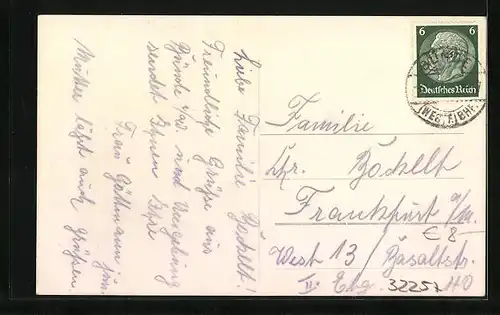 Liebe Familie Bockelt!
Freundliche Grüße aus
Bünde i/W. und Umgebung
sendet Ihnen Ihre
Frau Göttmann jun.
Mutter läßt auch grüßen.
6 6
Deutsches Reich
BÜNDE
(WESTF) BHF
Familie
Chr. Bockelt
Frankfurt a/M.
€ 8-
West 13 / Basaltstr.
II. Etg. 40
32257